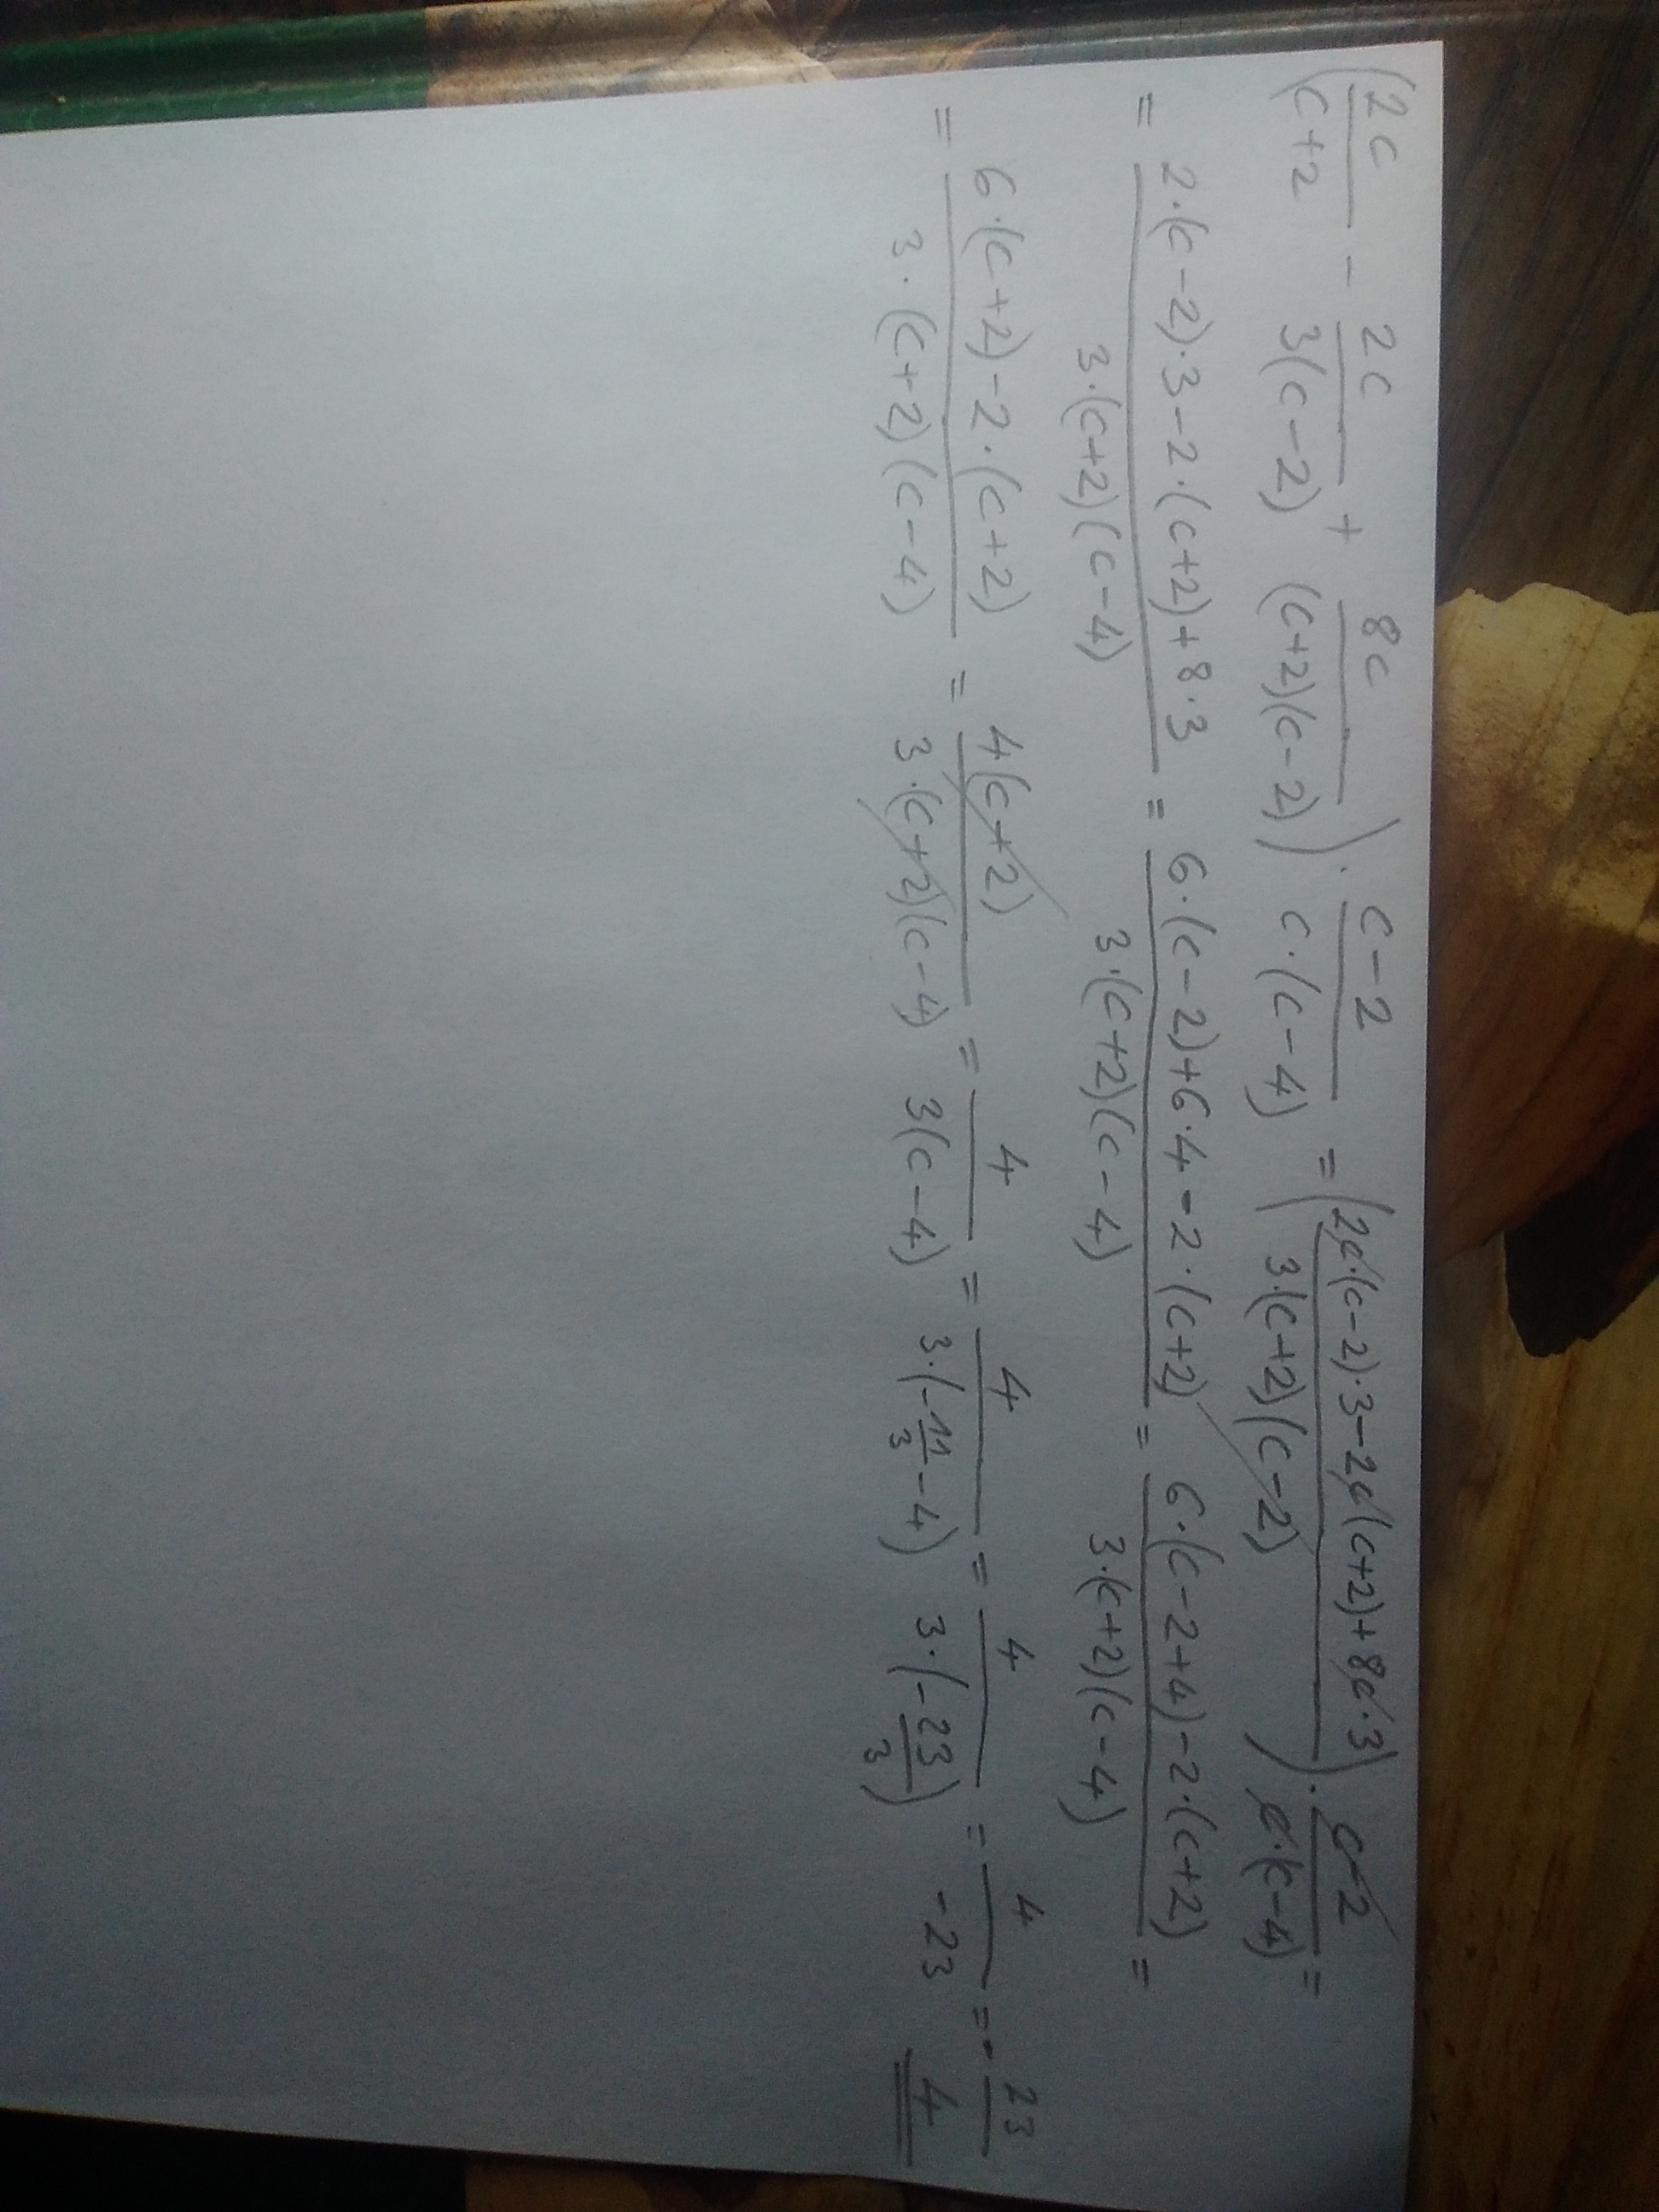 (2c/(c+2) - 2c/(3(c-2)) + 8c/((c+2)(c-2))) · (c-2)/(c·(c-4)) = ((2c·(c-2)·3-2c(c+2)+8c·3)/(3·(c+2)(c-2))) · (c-2)/(c·(c-4)) =
= (2·(c-2)·3-2·(c+2)+8·3)/(3·(c+2)(c-4)) = (6·(c-2)+6·4-2·(c+2))/(3·(c+2)(c-4)) = (6·(c-2+4)-2·(c+2))/(3·(c+2)(c-4)) =
= (6·(c+2)-2·(c+2))/(3·(c+2)(c-4)) = (4(c+2))/(3·(c+2)(c-4)) = 4/(3(c-4)) = 4/(3·(-11/3-4)) = 4/(3·(-23/3)) = 4/-23 = -23/4